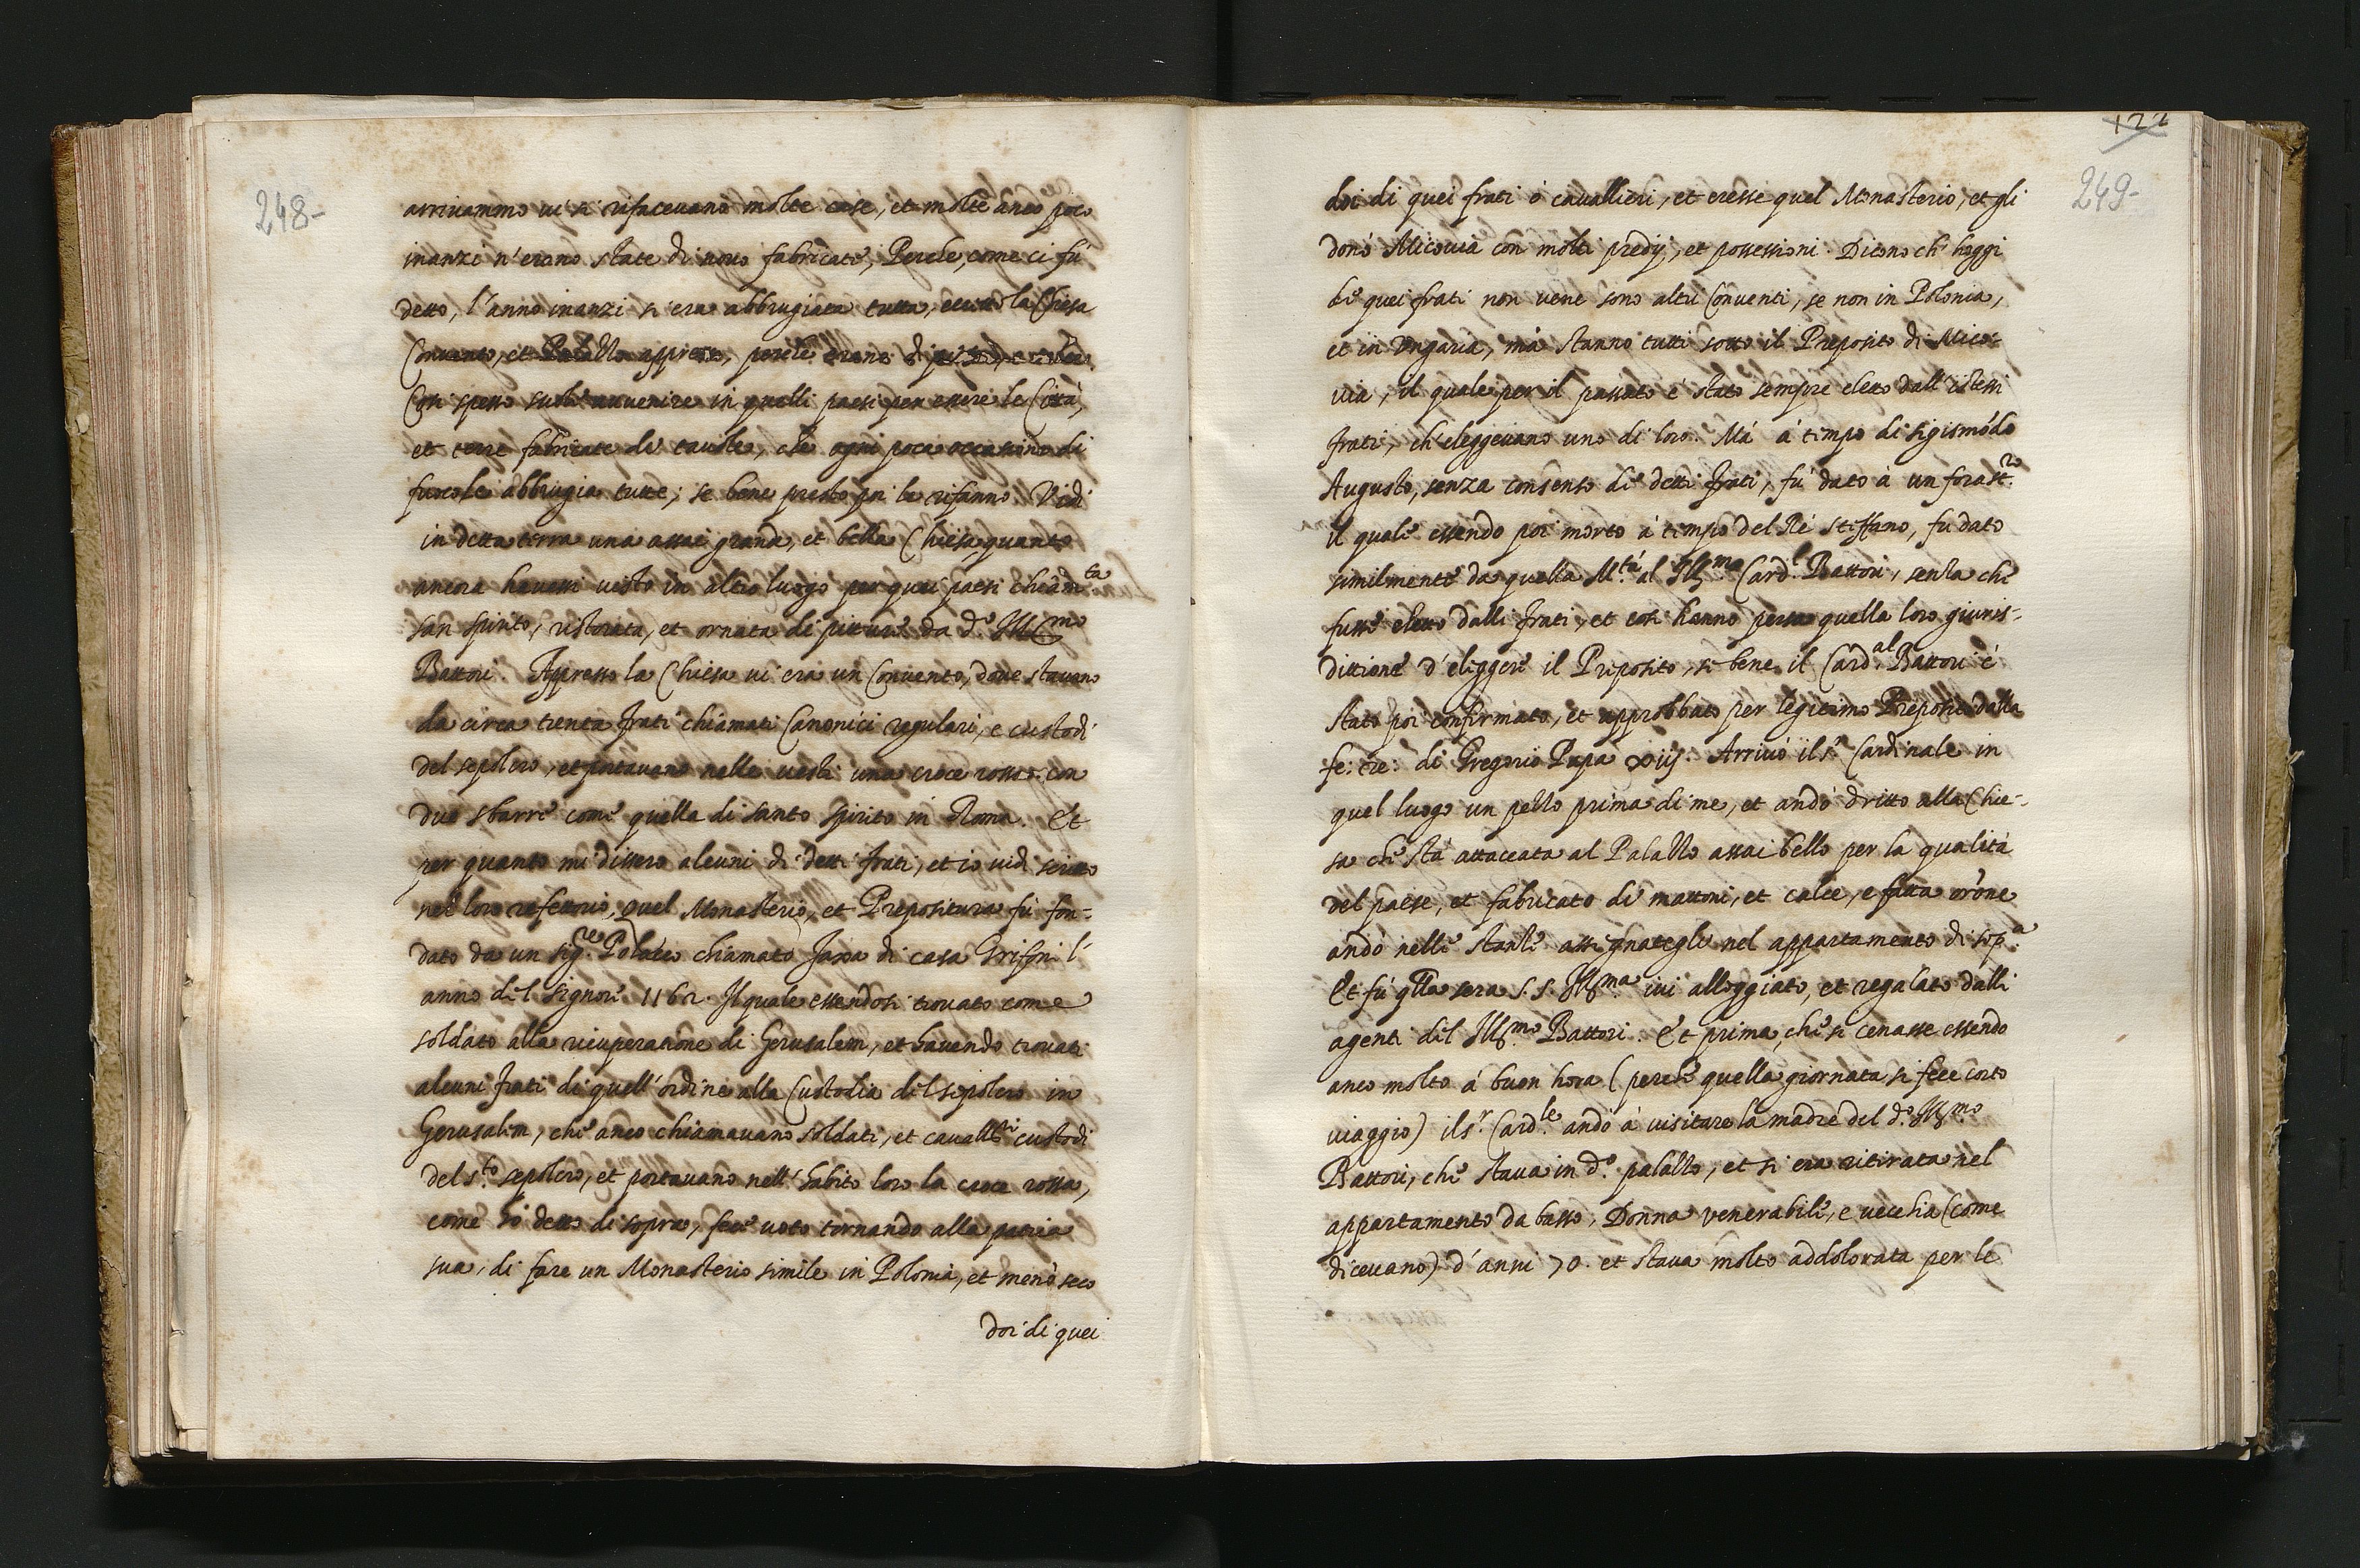 248-
arriuammo ui si rifaceuano molte case, et molte anco poco
inanzi n'erano state di nouo fabricate, Perche, come ci fù
detto, l'anno inanzi si era abbrugiata tutta, eccetto la Chiesa
Conuento, et Palazzo appresso, perche erano di
Così spesso suole auuenire in quelli paesi per essere le Città,
et terre fabricate di tauole, che ogni poca occasione di
fuoco le abbrugia tutte; se bene presto poi le rifanno. Vidi
in detta terra una assai grande, et bella Chiesa quanto
ancora hauessi visto in altro luogo per quei paesi chiam.ta
san spirito, ristorata, et ornata di pitture da d.º Ill.mo
Battori. Appresso la Chiesa ui era un Conuento, doue stauano
da circa trenta frati chiamati Canonici regulari, e custodi
del sepolcro, et portauano nelle uesti una croce rossa con
due sbarre come quella di santo spirito in Roma. Et
per quanto mi dissero alcuni di detti frati, et io uidi scritto
nel loro refettorio, quel Monasterio, et Prepositura fù fon-
dato da un sig.re Polacco chiamato Jaxa di casa Grifoni l'
anno del signore 1162. Il quale essendosi trouato come
soldato alla ricuperatione di Gerusalem, et hauendo trouati
alcuni frati di quell'ordine alla Custodia del sepolcro in
Gerusalem, che anco chiamauano soldati, et cauall.ri custodi
del s.to sepolcro, et portauano nell'habito loro la croce rossa,
come hò detto di sopra, fece uoto tornando alla patria
sua, di fare un Monasterio simile in Polonia, et menò seco
doi di quei
122
249-
doi di quei frati ò cauallieri, et eresse quel Monasterio, et gli
donò Micouia con molti predij, et possessioni. Dicono ch'hoggi
di quei frati non uene sono altri Conuenti, se non in Polonia,
et in Vngaria, mà stanno tutti sotto il Preposito di Mico-
uia, il quale per il passato è stato sempre eletto dall'istessi
frati, ch'eleggeuano uno di loro. Mà à tempo di sigismódo
Augusto, senza consenso di detti frati, fù dato à un forast.ro
il quale essendo poi morto à tempo del Rè steffano, fu dato
similmente da quella M.tà al Ill.mo Card.l Battori, senza che
fusse eletto dalli frati, et così hanno persa quella loro giuris-
dittione d'eliggere il Preposito, se bene il Card.al Battori è
stato poi confirmato, et approbbato per legitimo Preposito dalla
fe: re: di Gregorio Papa xiij. Arriuò il s.r Cardinale in
quel luogo un pezzo prima di me, et andò dritto alla Chie-
sa che stà attaccata al Palazzo assai bello per la qualità
del paese, et fabricato di mattoni, et calce, e fatta orõne
andò nelle stanze assignategli nel appartamento di sop.a
Et fù q̃lla sera S. S. Ill.ma iui alloggiato, et regalato dalli
agenti del Ill.mo Battori. Et prima che si cenasse essendo
anco molto à buon hora (perche quella giornata si fece corto
uiaggio) il s.r Card.le andò à uisitare la madre del d.º Ill.mo
Battori, che staua in d.º palazzo, et si era ritirata nel
appartamento da basso, Donna venerabile, e uecchia (come
diceuano) d'anni 70. et staua molto addolorata per le